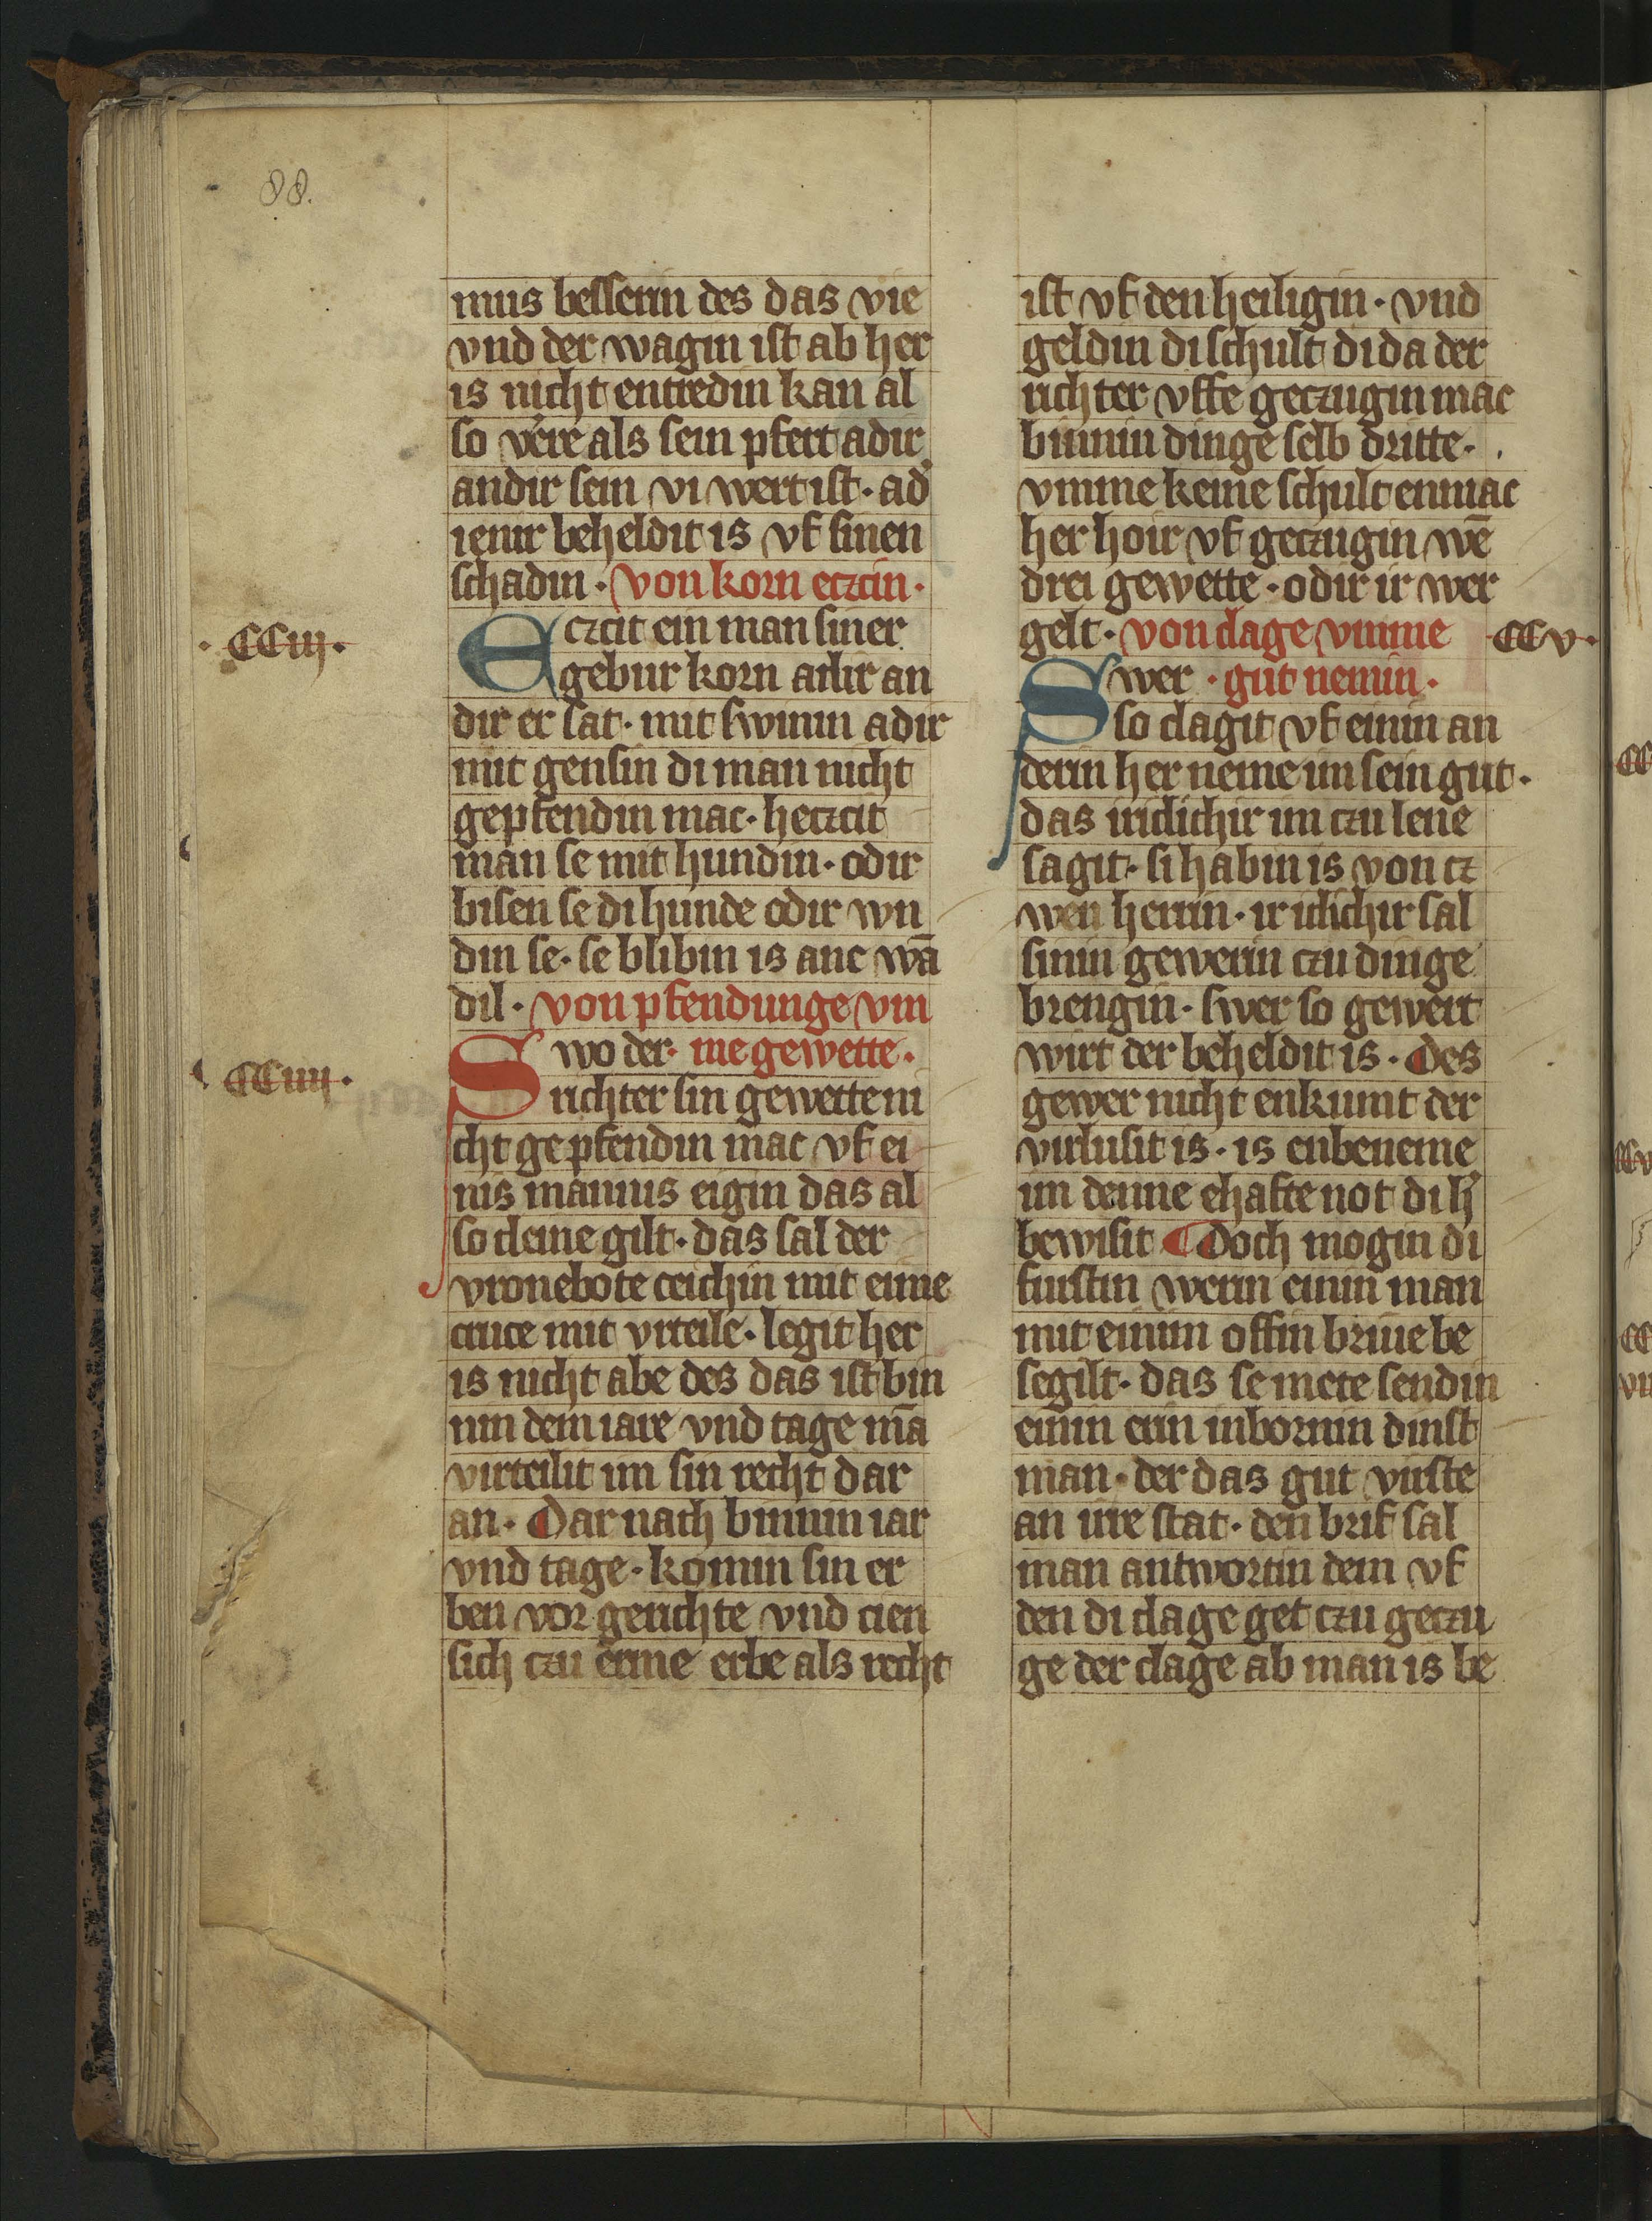 88.
mus besserin des das vie
vnd der wagin ist ab her
is nicht entredin kan al
so verre als sein pfert adir
andir sein vi wert ist · ad'
ienir beheldit is vf sinen
schadin · von korn eczcin ·
· CCiij ·
Eczcit ein man siner
gebur korn adir an
dir er sat · mit swinin adir
mit gensin di man nicht
gepfendin mac · heczcit
man se mit hundin · odir
bisen se di hunde odir wn
din se · se blibin is anc wā
dil · von pfendunge vm
Swo der · me gewette ·
· CCiiij ·
richter sin gewette ni
cht gepfendin mac vf ei
nis mannis eigin das al
so cleine gilt · das sal der
vronebote ceichin mit eime
cruce mit vrteile · legit her
is nicht abe des das ist bin
nin dem iare vnd tage mā
virteilit im sin recht dar
an · Dar nach binnin iar
vnd tage · komin sin er
ben vor gerichte vnd cien
sich czu erme erbe als recht
ist vf den heiligin · vnd
geldin di schult di da der
richter vffe geczugin mac
binnin dinge selb dritte ·
vmme keine schult enmac
her hoir vf geczugin wē
drei gewette · odir ir wer
gelt · von clage vmme
CCv ·
Swer · gut nemin ·
so clagit vf einin an
derin her neme im sein gut ·
das iriclichir im czu lene
sagit · si habin is von cz
wen herrin · ir iclichir sal
sinin gewerin czu dinge
brengin · swer so gewert
wirt der beheldit is · Des
gewer nicht enkumt der
virlusit is · is enbeneme
im denne ehafte not di h'
bewisit ¶ Doch mogin di
furstin werin einin man
mit einim offin briue be
segilt · das se mete sendin
einin erin inbornin dinst
man · der das gut vuste
an irre stat · den brif sal
man antwortin dem vf
den di clage get czu geczu
ge der clage ab man is be